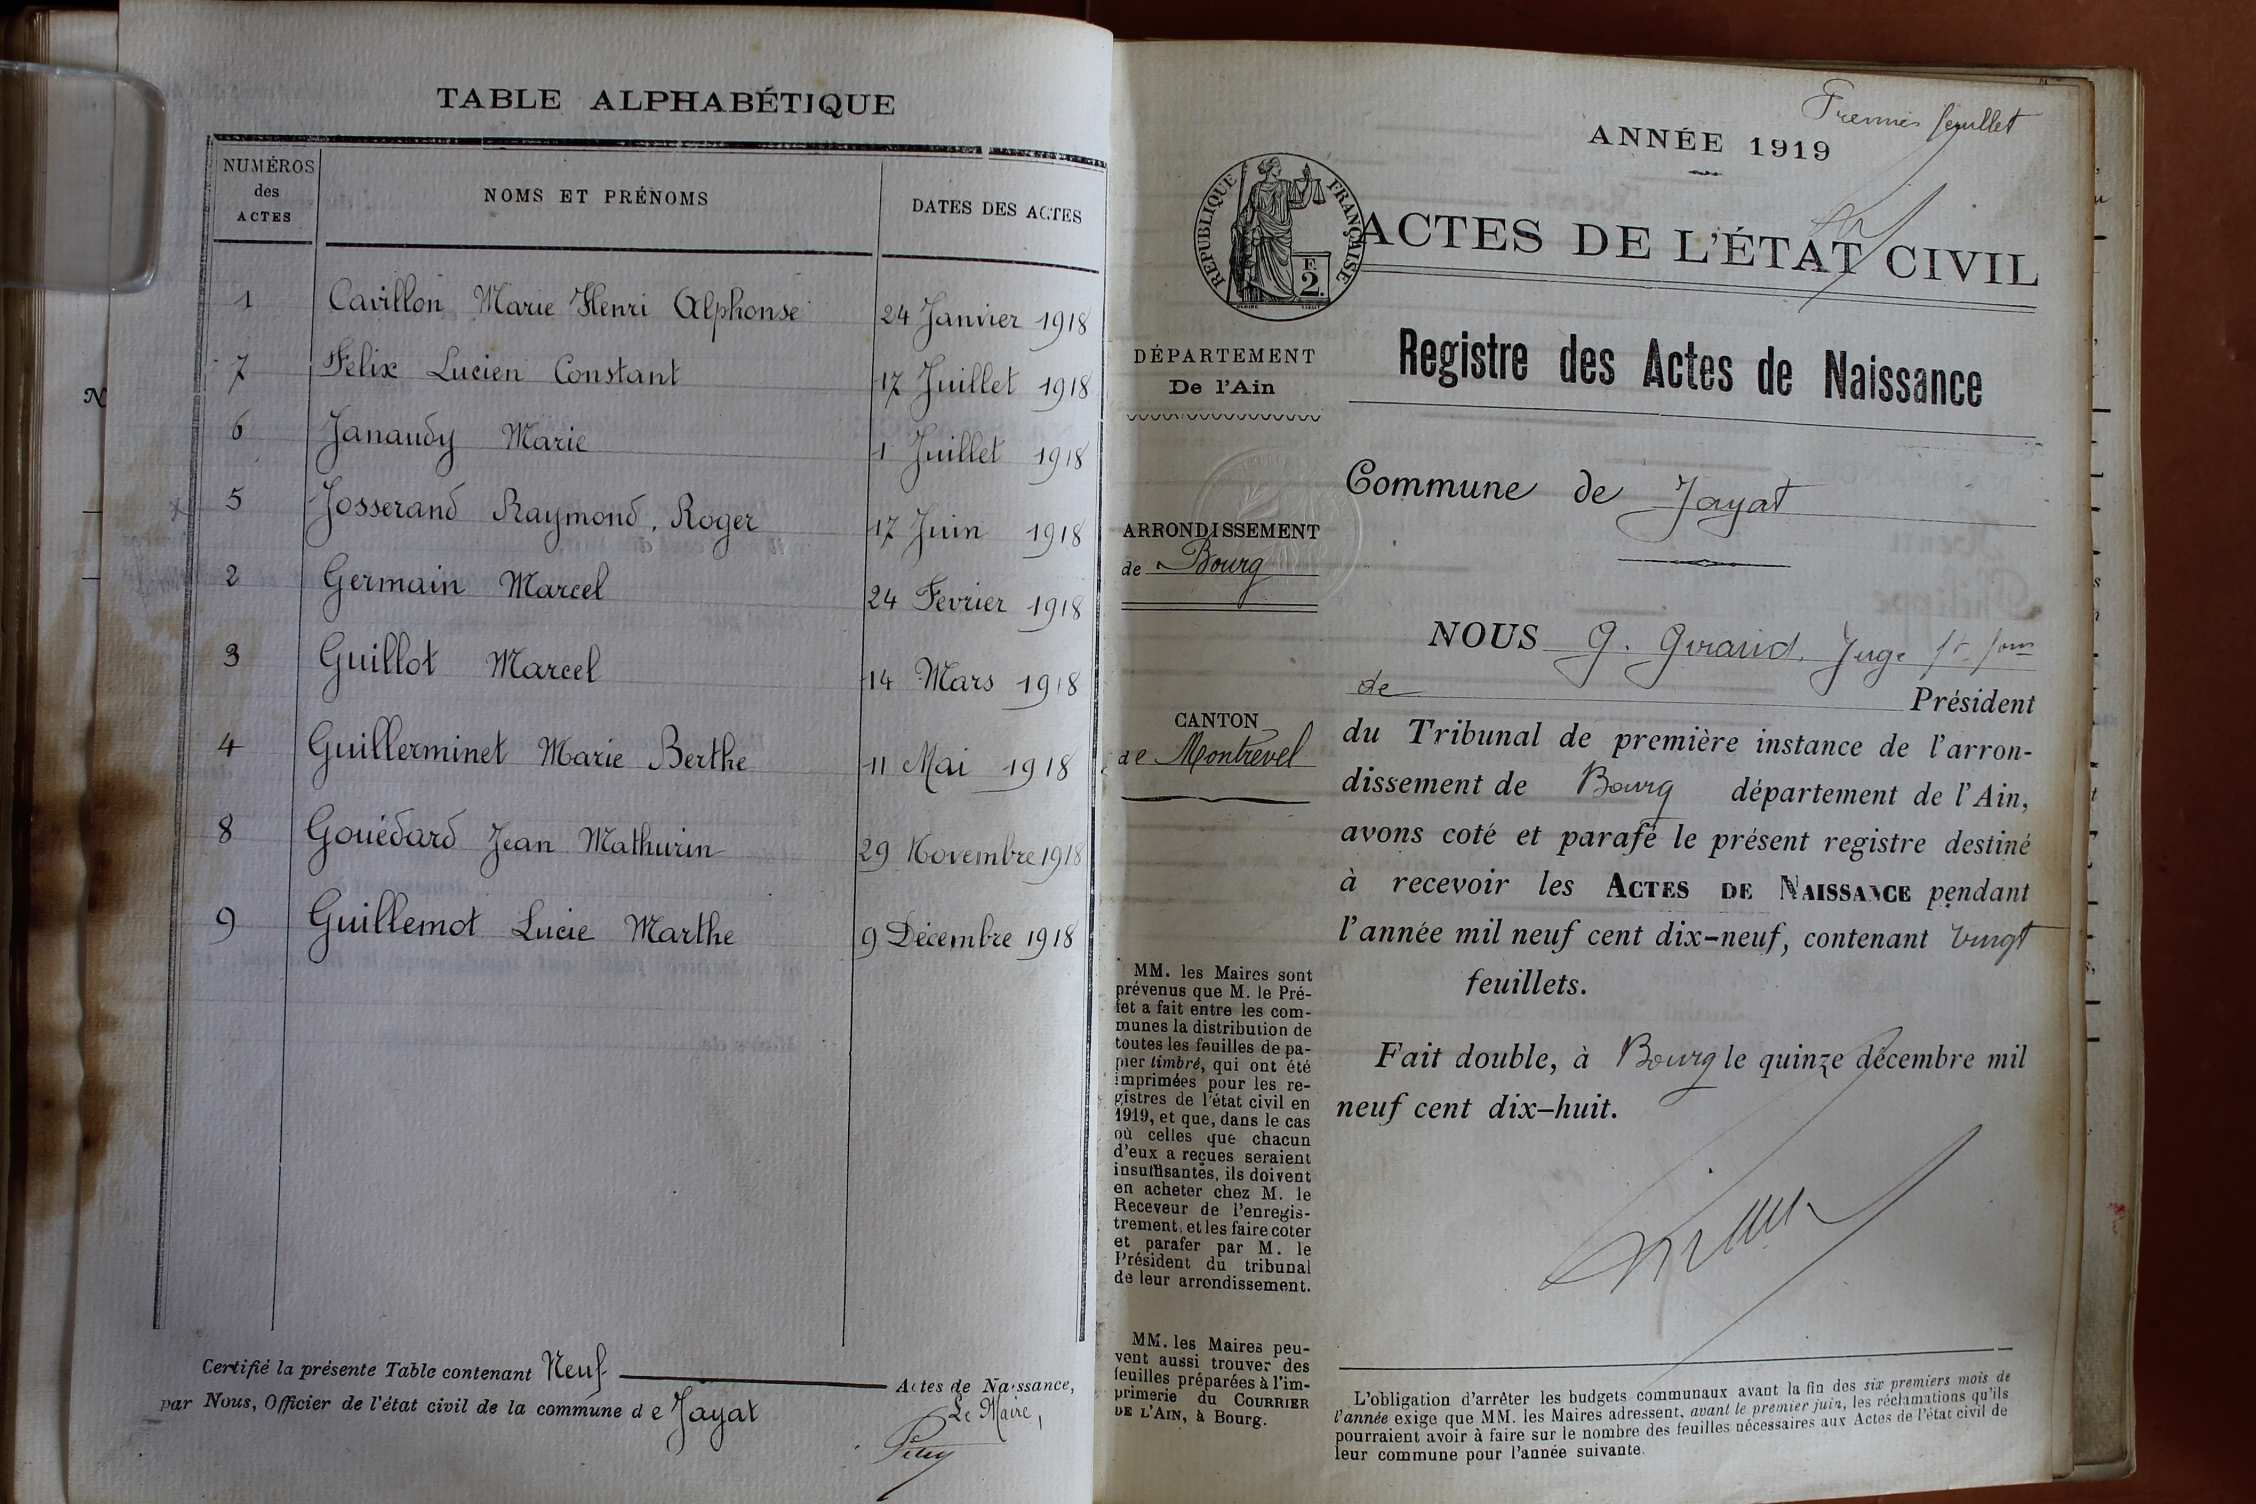 TABLE ALPHABÉTIQUE
NUMÉROS des ACTES NOMS ET PRÉNOMS DATES DES ACTES
1 Cavillon Marie Henri Alphonse 24 Janvier 1918
7 Felix Lucien Constant 17 Juillet 1918
6 Janaudy Marie 1 Juillet 1918
5 Josserand Raymond, Roger 17 Juin 1918
2 Germain Marcel 24 Fevrier 1918
3 Guillot Marcel 14 Mars 1918
4 Guillerminet Marie Berthe 11 Mai 1918
8 Gouédard Jean Mathurin 29 Novembre 1918
9 Guillemot Lucie Marthe 9 Décembre 1918
Certifié la présente Table contenant Neuf Actes de Naissance,
par Nous, Officier de l'état civil de la commune de Jayat
Le Maire,
Premier feuillet
ANNÉE 1919
RÉPUBLIQUE FRANÇAISE
F
2.
ACTES DE L'ÉTAT CIVIL
DÉPARTEMENT
De l'Ain
ARRONDISSEMENT
de Bourg
CANTON
de Montrevel
MM. les Maires sont
prévenus que M. le Pré-
fet a fait entre les com-
munes la distribution de
toutes les feuilles de pa-
pier timbré, qui ont été
imprimées pour les re-
gistres de l'état civil en
1919, et que, dans le cas
où celles que chacun
d'eux a reçues seraient
insuffisantes, ils doivent
en acheter chez M. le
Receveur de l'enregis-
trement, et les faire coter
et parafer par M. le
Président du tribunal
de leur arrondissement.
MM. les Maires peu-
vent aussi trouver des
feuilles préparées à l'im-
primerie du COURRIER
DE L'AIN, à Bourg.
Registre des Actes de Naissance
Commune de Jayat
NOUS G. Giraud, Juge
de Président
du Tribunal de première instance de l'arron-
dissement de Bourg département de l'Ain,
avons coté et parafé le présent registre destiné
à recevoir les ACTES DE NAISSANCE pendant
l'année mil neuf cent dix-neuf, contenant vingt
feuillets.
Fait double, à Bourg le quinze décembre mil
neuf cent dix-huit.
L'obligation d'arrêter les budgets communaux avant la fin des six premiers mois de
l'année exige que MM. les Maires adressent, avant le premier juin, les réclamations qu'ils
pourraient avoir à faire sur le nombre des feuilles nécessaires aux Actes de l'état civil de
leur commune pour l'année suivante.